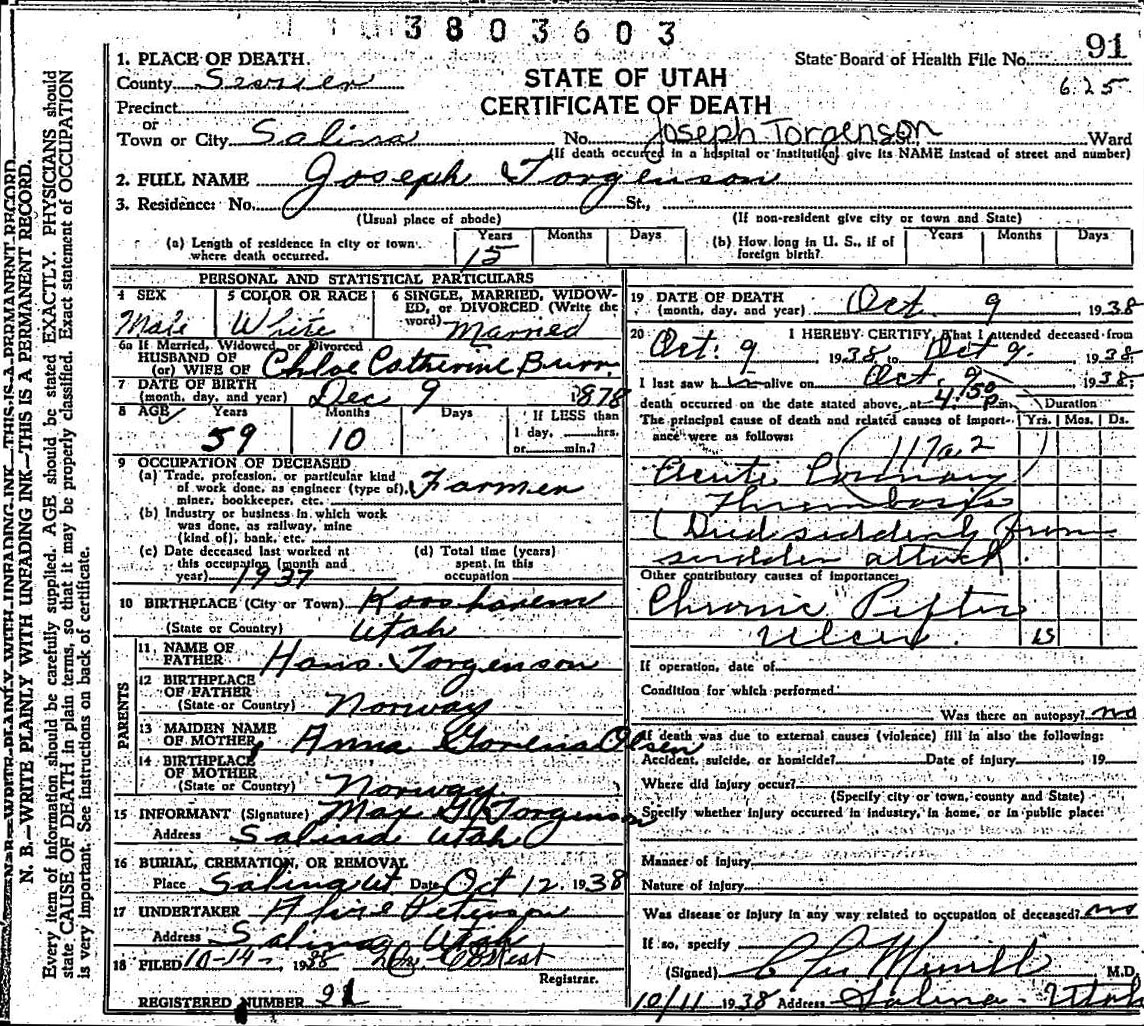 3803603
91
1. PLACE OF DEATH.
State Board of Health File No.
County Sevier
STATE OF UTAH
625
Precinct
CERTIFICATE OF DEATH
or
Town or City Salina No. Joseph Torgenson Ward
(If death occurred in a hospital or institution, give its NAME instead of street and number)
2. FULL NAME Joseph Torgenson
3. Residence: No. St.,
(Usual place of abode) (If non-resident give city or town and State)
(a) Length of residence in city or town where death occurred. Years 15 Months Days
(b) How long in U. S., if of foreign birth? Years Months Days
PERSONAL AND STATISTICAL PARTICULARS
4 SEX Male
5 COLOR OR RACE White
6 SINGLE, MARRIED, WIDOWED, or DIVORCED (Write the word) Married
6a If Married, Widowed or Divorced
HUSBAND OF
(or) WIFE OF Chloe Catherine Burr
7 DATE OF BIRTH
(month, day, and year) Dec 9 1878
8 AGE Years 59 Months 10 Days If LESS than 1 day, hrs. or min.?
9 OCCUPATION OF DECEASED
(a) Trade, profession, or particular kind of work done, as engineer (type of), miner, bookkeeper, etc. Farmer
(b) Industry or business in which work was done, as railway, mine (kind of), bank, etc.
(c) Date deceased last worked at this occupation (month and year) 1937
(d) Total time (years) spent in this occupation
10 BIRTHPLACE (City or Town) Koosharem
(State or Country) Utah
PARENTS
11 NAME OF FATHER Hans Torgenson
12 BIRTHPLACE OF FATHER
(State or Country) Norway
13 MAIDEN NAME OF MOTHER Anna Olsen
14 BIRTHPLACE OF MOTHER
(State or Country) Norway
15 INFORMANT (Signature) Max G. Torgenson
Address Salina Utah
16 BURIAL, CREMATION, OR REMOVAL
Place Salina Ut. Date Oct 12. 1938
17 UNDERTAKER
Address Salina Utah
18 FILED 10-14- 1938
Registrar.
REGISTERED NUMBER 91
19 DATE OF DEATH
(month, day, and year) Oct. 9 1938
20 I HEREBY CERTIFY, That I attended deceased from
Oct. 9 1938 to Oct 9. 1938
I last saw h im alive on Oct. 9 1938,
death occurred on the date stated above, at 4:50 P m. Duration
The principal cause of death and related causes of importance were as follows: Yrs. Mos. Ds.
Acute Coronary
Thrombosis
(Died suddenly from
sudden attack.
Other contributory causes of importance:
Chronic Peptic
Ulcer. 15
If operation, date of
Condition for which performed
Was there an autopsy? no
If death was due to external causes (violence) fill in also the following:
Accident, suicide, or homicide? Date of injury 19
Where did injury occur?
(Specify city or town, county and State)
Specify whether injury occurred in industry, in home, or in public place:
Manner of injury
Nature of injury
Was disease or injury in any way related to occupation of deceased? no
If so, specify
(Signed) M.D.
10/11 1938 Address Salina Utah
N. B.—WRITE PLAINLY WITH UNFADING INK—THIS IS A PERMANENT RECORD.
Every item of information should be carefully supplied. AGE should be stated EXACTLY. PHYSICIANS should
state CAUSE OF DEATH in plain terms, so that it may be properly classified. Exact statement of OCCUPATION
is very important. See instructions on back of certificate.